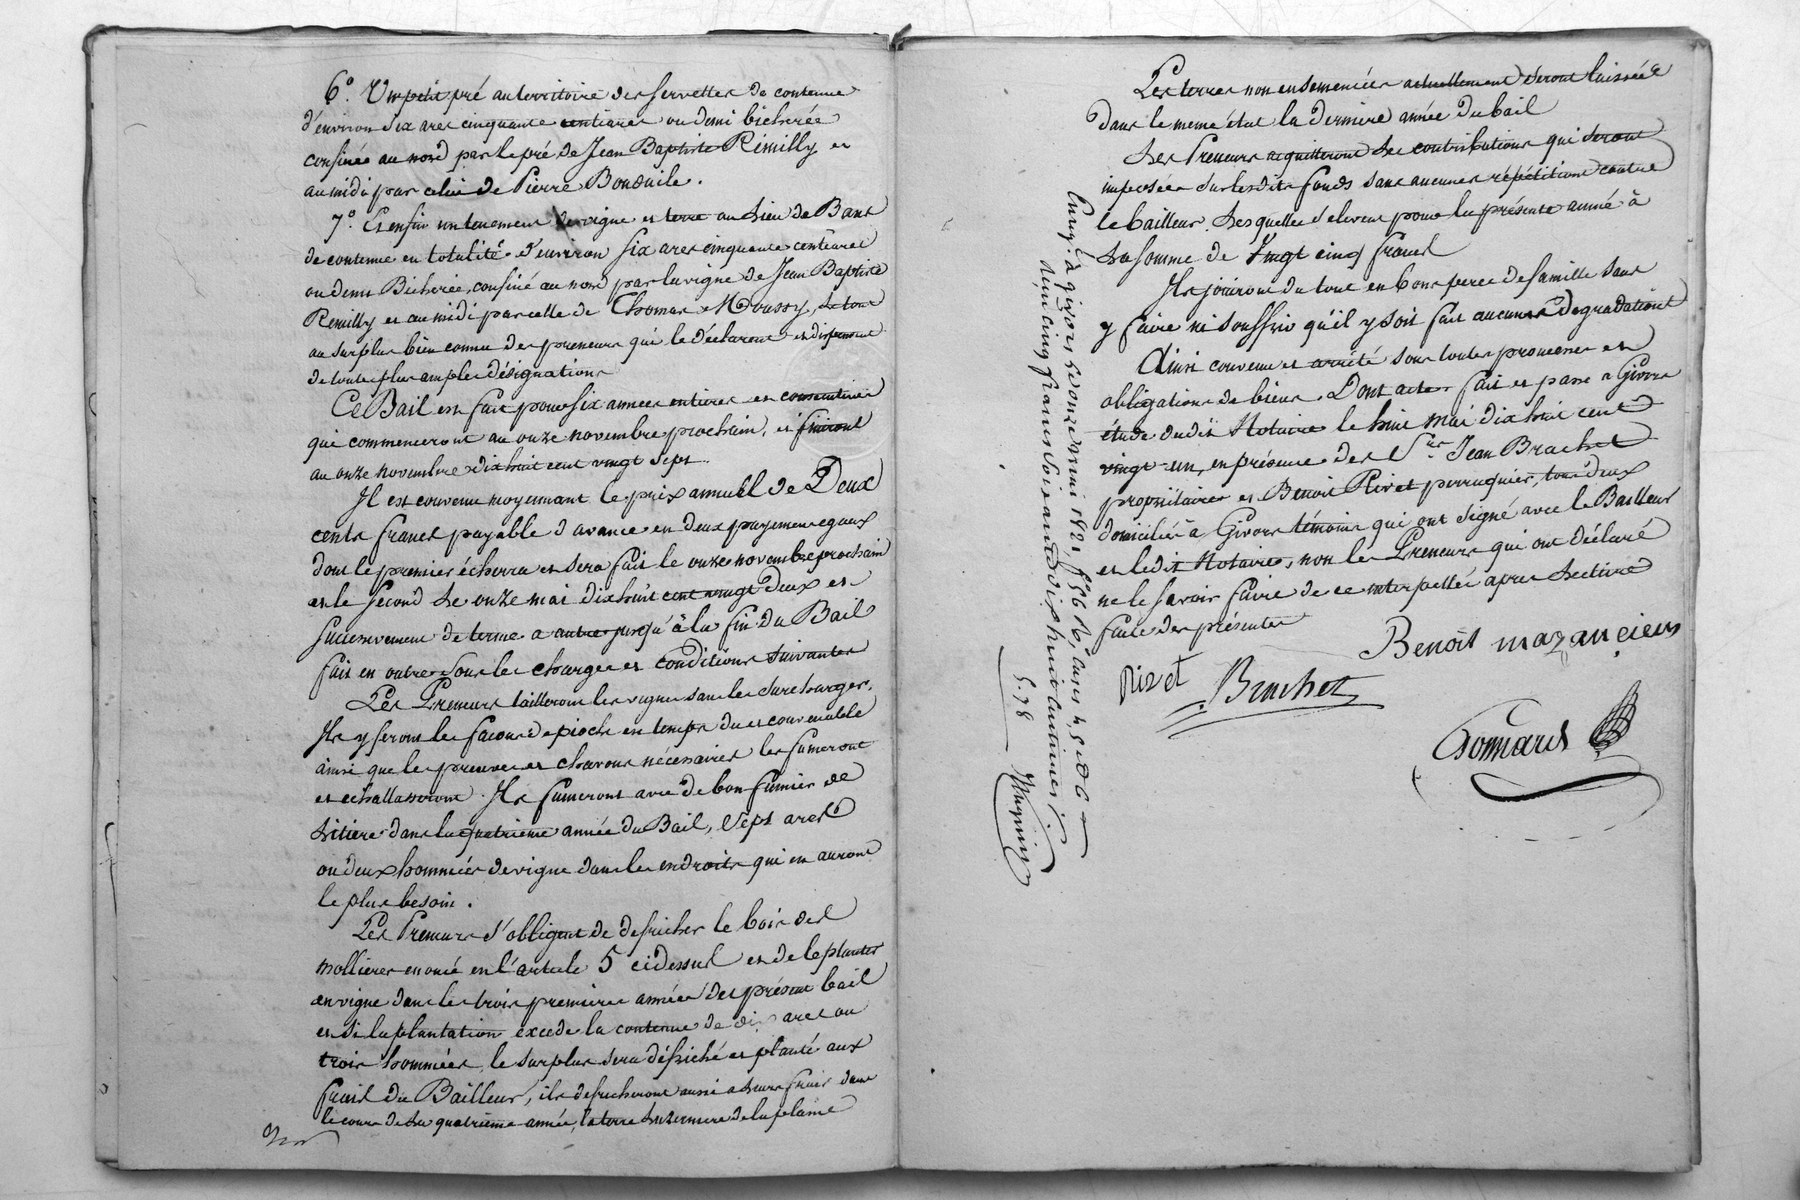 6º. Un petit pré au territoire des servettes de contenue
d'environ six ares cinquante centiares ou demi bicherée
confinée au nord par le pré de Jean Baptiste Rémilly et
au midi par celui de Pierre Bonduile.
7º. Et enfin un tenement de vigne et terre au Lieu de Bans
de contenue en totalité d'environ six ares cinquante centiares
ou demi Bicherée, confiné au nord par la vigne de Jean Baptiste
Remilly et au midi par celle de Thomas Moussy, Le tout
au surplus bien connu des preneurs qui le déclarent et dispensent
de toute plus ample désignation
Ce Bail est fait pour six années entières et consecutives
qui commenceront au onze novembre prochain, et finiront
au onze novembre dix huit cent vingt sept
Il est convenu moyennant le prix annuel de Deux
cents francs payable d'avance en deux payemens egaux
dont le premier écherra et sera fait le onze novembre prochain
et le second Le onze mai dix huit cent vingt Deux et
successivement de terme a autre jusqu'à la fin du Bail
fait en outre sous les charges et conditions suivantes
Les Preneurs tailleront les vignes sans les surcharger,
Ils y feront les facons de pioche en temps du et convenable
ainsi que les preuves et chavons nécessaires les fumeront
et echallasseront. Ils fumeront avec de bon fumier de
Litiere dans la quatrieme année du Bail, Sept ares
ou deux hommées de vigne dans les endroits qui en auront
le plus besoin.
Les Preneurs s'obligent de defricher le bois des
mollieres enoncé en l'article 5 ci dessus et de le planter
en vigne dans les trois premieres années du présent bail
et si la plantation excede la contenue de dix ares ou
trois hommées, le surplus sera défriché et planté aux
frais du Bailleur, ils defricheront aussi a Leurs frais dans
le cours de La quatrieme année, la terre Luzerniere de la plaine
Les terres non ensemencées actuellement seront laissées
dans le meme état la derniere année du bail
Les Preneurs acquitteront Les contributions qui seront
imposées sur lesdits fonds sans aucunes répétitions contre
le bailleur. Lesquelles s'elevent pour la présente année à
La somme de Vingt cinq francs
Ils jouiront du tout en bons peres de famille sans
y faire ni souffrir qu'il y soit fait aucunes degradations
Ainsi convenu et arrêté sous toutes promesses et
obligations de biens. Dont acte fait et passé a Givors
étude dudit Notaire le huit mai dix huit cent
vingt-un, en présence des Srs. Jean Brachet
propriétaire et Benoit Rivet perruquier, tous deux
domiciliés à Givors témoins qui ont signé avec le Bailleur
et ledit Notaire, non les Preneurs qui ont déclaré
ne le savoir faire de ce interpellés apres Lecture
faite des présentes
Benoît mazanciens
Rivet
Brachet
Bonnard
Enreg. à givors le onze mai 1821 fo. 56 Ro, cases 4, 5 et 6
reçu cinq francs soixante dix huit centimes
5.78